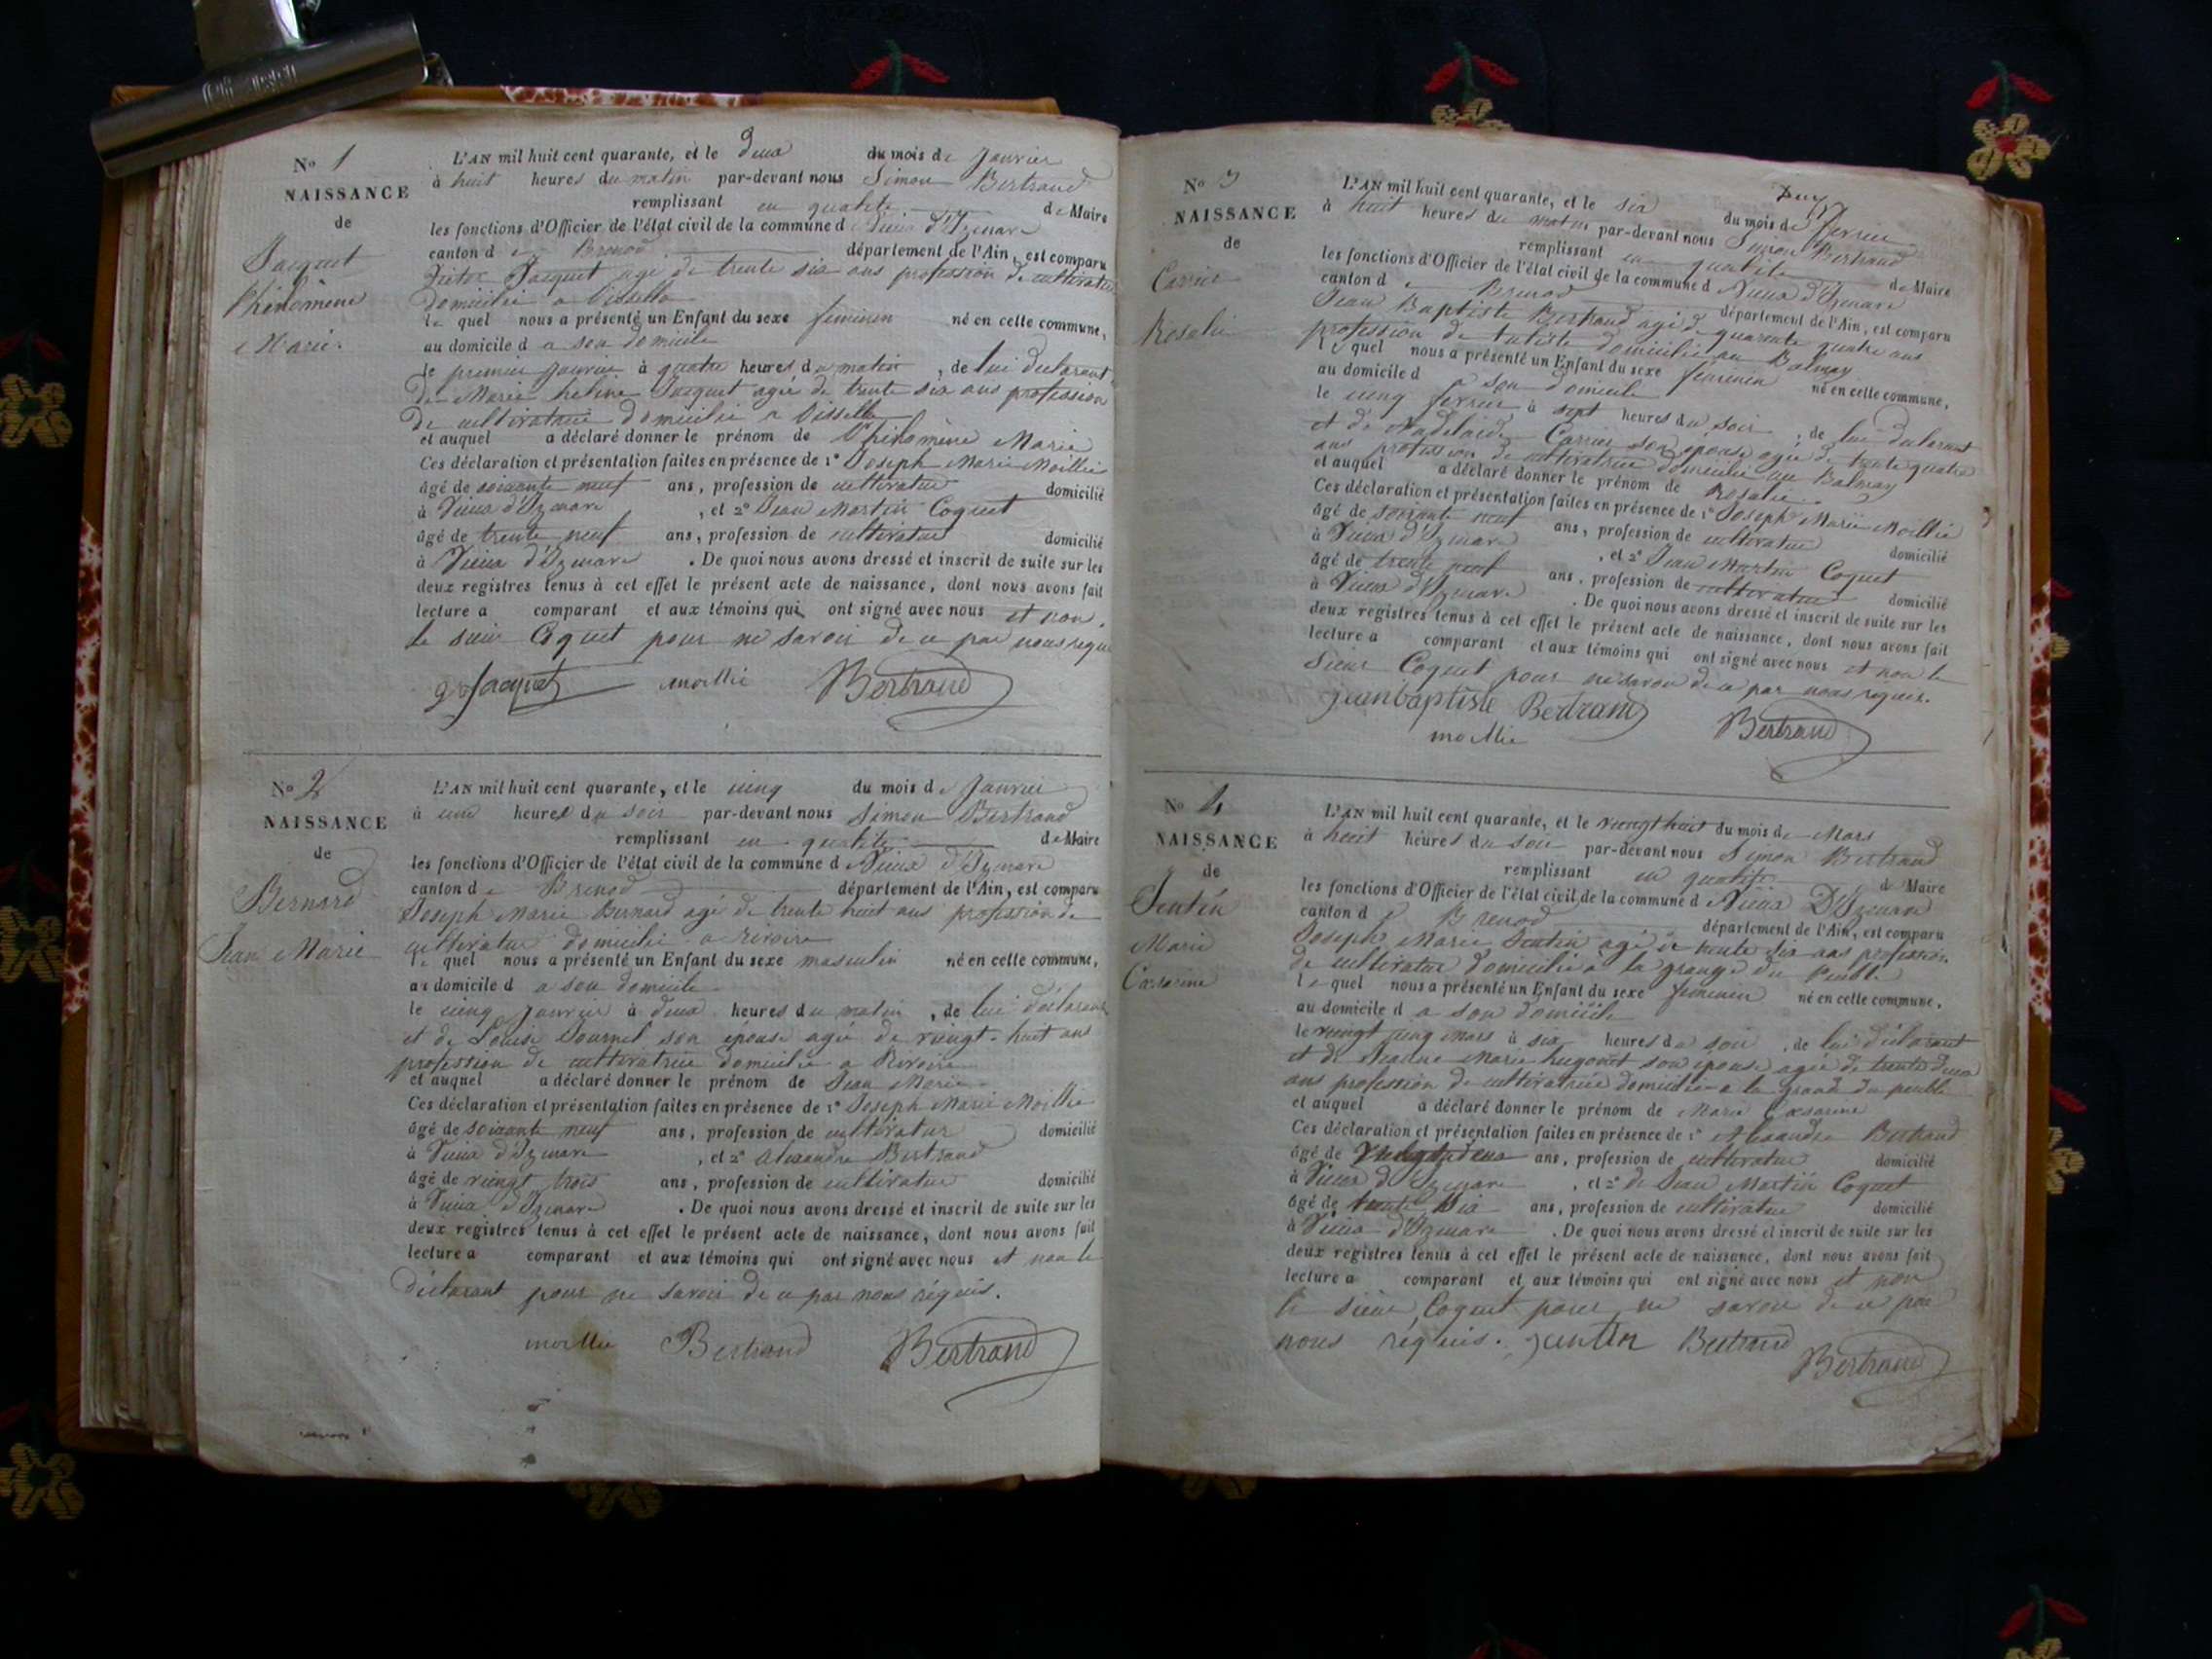 N° 1
NAISSANCE
de
Jacquet
Philomène
Marie.
L'AN mil huit cent quarante, et le deux du mois de Janvier
à huit heures du matin par-devant nous Simon Bertrand
remplissant en qualité de Maire
les fonctions d'Officier de l'état civil de la commune d Vieux d'Izenave
canton de Brenod département de l'Ain, est comparu
Victor Jacquet agé de trente six ans profession de cultivateur
domicilié a
le quel nous a présenté un Enfant du sexe feminin né en cette commune,
au domicile d a son domicile
le premier janvier à quatre heures du matin, de lui declarant
de Marie helene Jacquet agée de trente six ans profession
de cultivatrice domicilié a
et auquel a déclaré donner le prénom de Philomène Marie
Ces déclaration et présentation faites en présence de 1° Joseph Marie Moillie
âgé de soixante neuf ans, profession de cultivateur domicilié
à Vieux d'Izenave, et 2° Jean Martin Coquet
âgé de trente neuf ans, profession de cultivateur domicilié
à Vieux d'Izenave. De quoi nous avons dressé et inscrit de suite sur les
deux registres tenus à cet effet le présent acte de naissance, dont nous avons fait
lecture a comparant et aux témoins qui ont signé avec nous et non
le sieur Coquet pour ne savoir de ce par nous requis
Jacquet moillie Bertrand
N° 2
NAISSANCE
de
Bernard
Jean Marie
L'AN mil huit cent quarante, et le cinq du mois de Janvier
à une heures du soir par-devant nous Simon Bertrand
remplissant en qualité de Maire
les fonctions d'Officier de l'état civil de la commune d Vieux d'Izenave
canton de Brenod département de l'Ain, est comparu
Joseph Marie Bernard agé de trente huit ans profession de
cultivateur domicilié a rivoire
le quel nous a présenté un Enfant du sexe masculin né en cette commune,
au domicile d a son domicile
le cinq janvier à deux heures du matin, de lui déclarant
et de Louise Tournel son épouse agée de vingt-huit ans
profession de cultivatrice domicilié a Rivoire
et auquel a déclaré donner le prénom de Jean Marie
Ces déclaration et présentation faites en présence de 1° Joseph Marie Moillie
âgé de soixante neuf ans, profession de cultivateur domicilié
à Vieux d'Izenave, et 2° Alexandre Bertrand
âgé de vingt trois ans, profession de cultivateur domicilié
à Vieux d'Izenave. De quoi nous avons dressé et inscrit de suite sur les
deux registres tenus à cet effet le présent acte de naissance, dont nous avons fait
lecture a comparant et aux témoins qui ont signé avec nous et non le
déclarant pour ne savoir de ce par nous réquis.
moillie Bertrand Bertrand
N° 3
NAISSANCE
de
Carrier
Rosalie
L'AN mil huit cent quarante, et le six du mois de fevrier
à huit heures du matin par-devant nous Simon Bertrand
remplissant en qualité de Maire
les fonctions d'Officier de l'état civil de la commune d Vieux d'Izenave
canton de Brenod département de l'Ain, est comparu
Jean Baptiste Bertrand agé de quarante quatre ans
profession de domicilié au Balmay
le quel nous a présenté un Enfant du sexe feminin né en cette commune,
au domicile d a son domicile
le cinq fevrier à sept heures du soir, de lui declarant
et d' Carrier son épouse agée de trente quatre
ans profession de cultivatrice domicilié au Balmay
et auquel a déclaré donner le prénom de Rosalie.
Ces déclaration et présentation faites en présence de 1° Joseph Marie Moillie
âgé de soixante neuf ans, profession de cultivateur domicilié
à Vieux d'Izenave, et 2° Jean Martin Coquet
âgé de trente neuf ans, profession de cultivateur domicilié
à Vieux d'Izenave. De quoi nous avons dressé et inscrit de suite sur les
deux registres tenus à cet effet le présent acte de naissance, dont nous avons fait
lecture a comparant et aux témoins qui ont signé avec nous et non le
Sieur Coquet pour ne savoir de ce par nous requis.
jeanbaptiste Bertrand Bertrand
moillie
N° 4
NAISSANCE
de
Jentin
Marie
L'AN mil huit cent quarante, et le vingt huit du mois de Mars
à huit heures du soir par-devant nous Simon Bertrand
remplissant en qualité de Maire
les fonctions d'Officier de l'état civil de la commune d Vieux D'Izenave
canton d Brenod département de l'Ain, est comparu
Joseph Marie Jentin agé de trente six ans profession
de cultivateur domicilié à la grange du
le quel nous a présenté un Enfant du sexe feminin né en cette commune,
au domicile d a son domicile
le vingt cinq mars à six heures du soir, de lui déclarant
et de Marie hugonet son épouse agée de trente deux
ans profession de cultivatrice domicilié a la
et auquel a déclaré donner le prénom de Marie
Ces déclaration et présentation faites en présence de 1° Alexandre Bertrand
âgé de ans, profession de cultivateur domicilié
à Vieux d'Izenave, et 2° de Jean Martin Coquet
âgé de trente ans, profession de cultivateur domicilié
à Vieux d'Izenave. De quoi nous avons dressé et inscrit de suite sur les
deux registres tenus à cet effet le présent acte de naissance, dont nous avons fait
lecture a comparant et aux témoins qui ont signé avec nous et non
le sieur Coquet pour ne savoir de ce par
nous réquis. jentin Bertrand
Bertrand